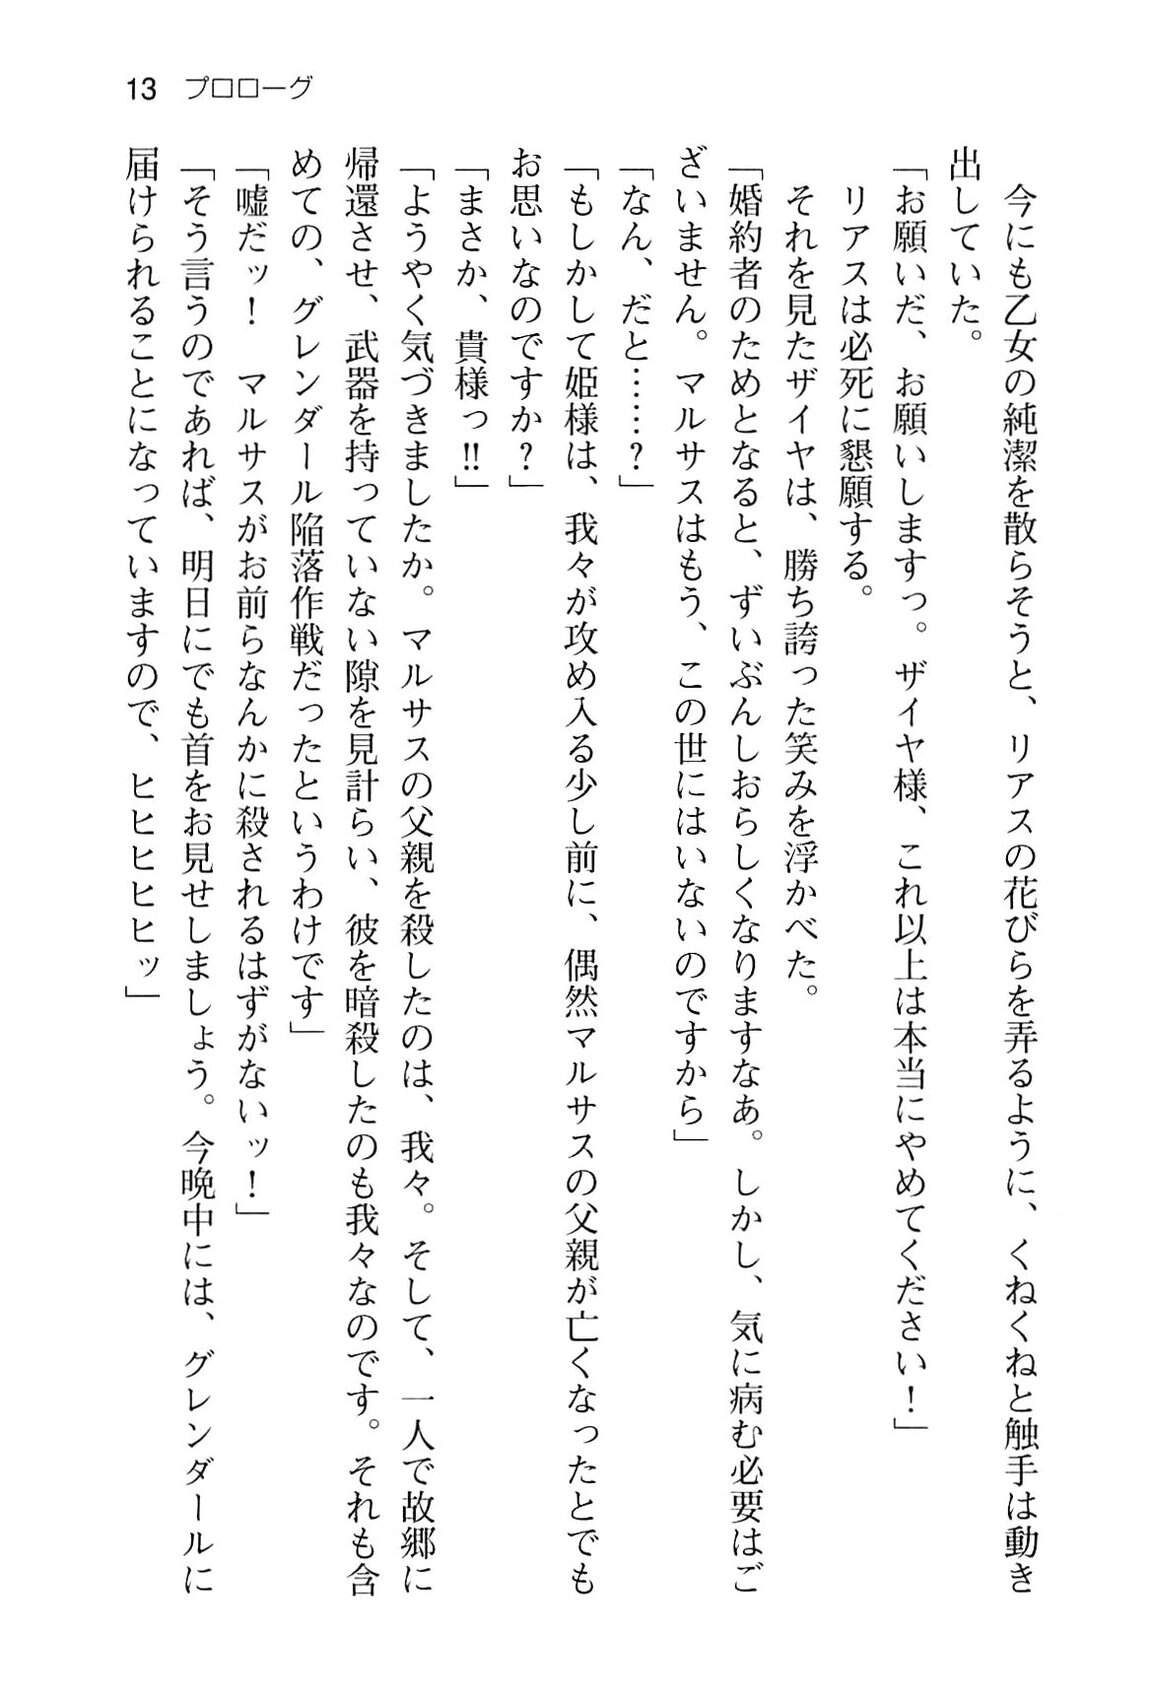 13 プロローグ
　今にも乙女の純潔を散らそうと、リアスの花びらを弄るように、くねくねと触手は動き
出していた。
「お願いだ、お願いしますっ。ザイヤ様、これ以上は本当にやめてください！」
　リアスは必死に懇願する。
　それを見たザイヤは、勝ち誇った笑みを浮かべた。
「婚約者のためとなると、ずいぶんしおらしくなりますなあ。しかし、気に病む必要はご
ざいません。マルサスはもう、この世にはいないのですから」
「なん、だと……？」
「もしかして姫様は、我々が攻め入る少し前に、偶然マルサスの父親が亡くなったとでも
お思いなのですか？」
「まさか、貴様っ!!」
「ようやく気づきましたか。マルサスの父親を殺したのは、我々。そして、一人で故郷に
帰還させ、武器を持っていない隙を見計らい、彼を暗殺したのも我々なのです。それも含
めての、グレンダール陥落作戦だったというわけです」
「嘘だッ！　マルサスがお前らなんかに殺されるはずがないッ！」
「そう言うのであれば、明日にでも首をお見せしましょう。今晩中には、グレンダールに
届けられることになっていますので、ヒヒヒヒヒッ」